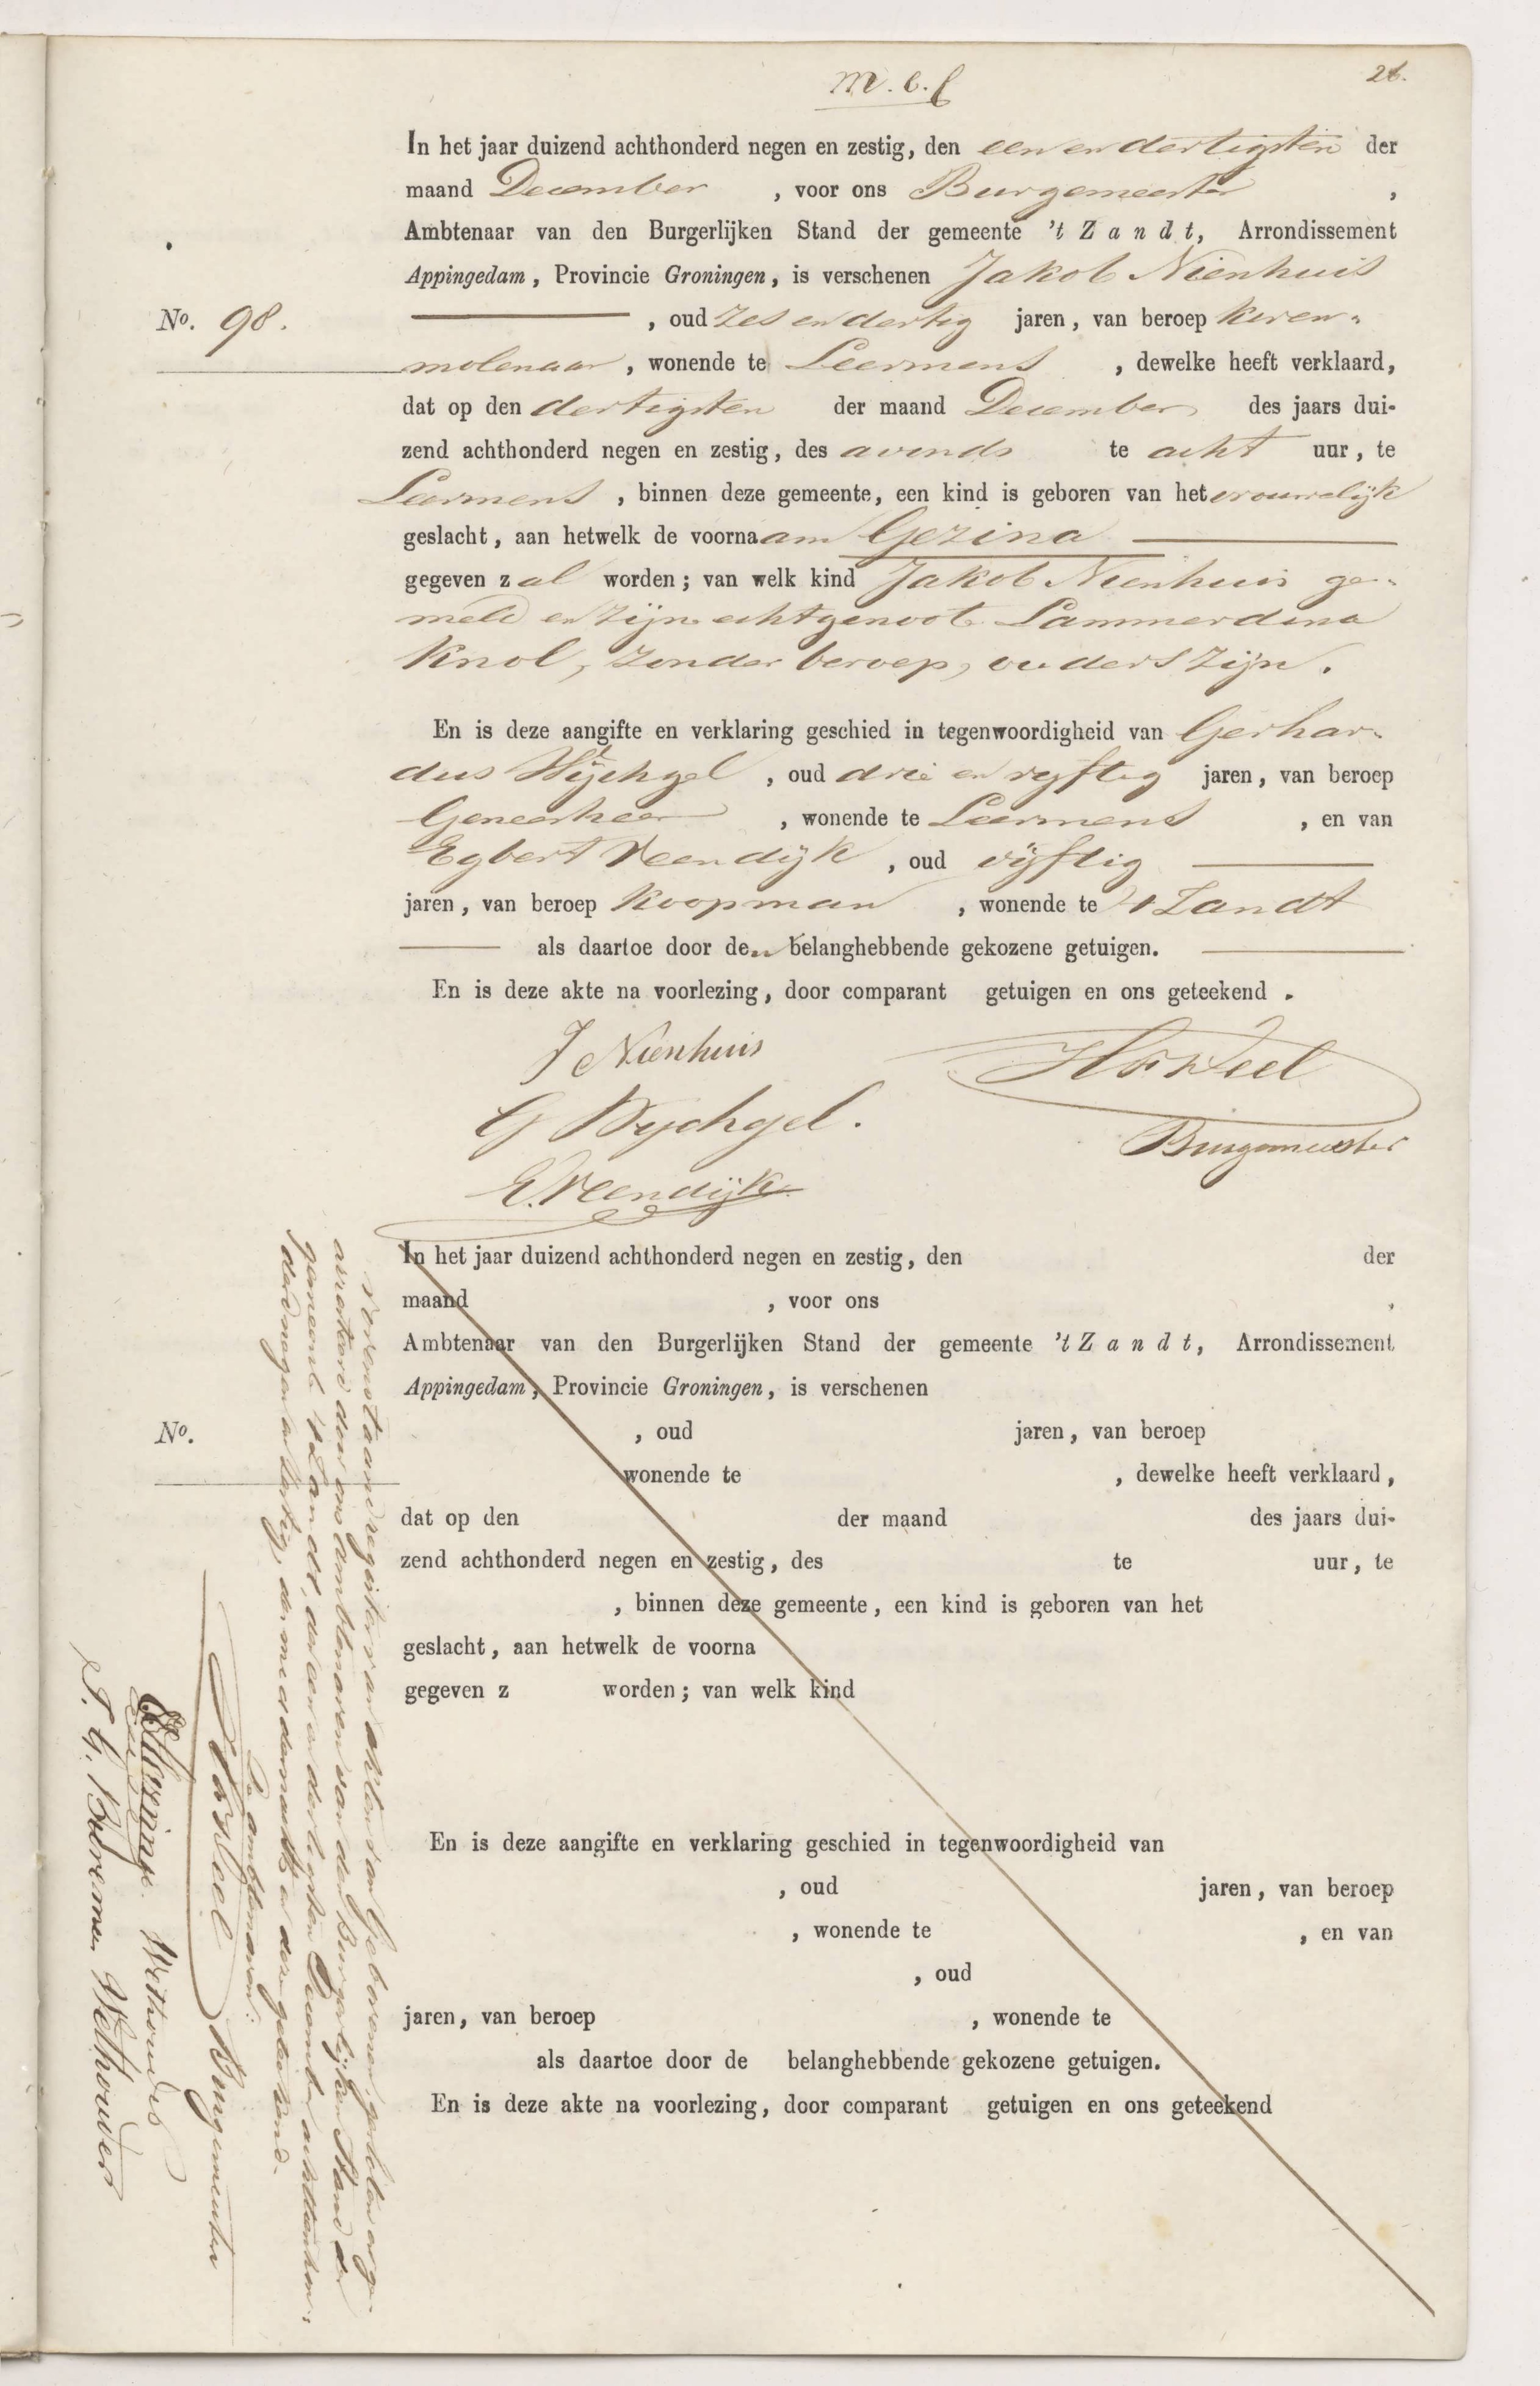 m. e. f
26.
In het jaar duizend achthonderd negen en zestig, den een en dertigsten der
maand December , voor ons Burgemeester ,
Ambtenaar van den Burgerlijken Stand der gemeente 't Zandt, Arrondissement
Appingedam, Provincie Groningen, is verschenen Jakob Nienhuis
No. 98.
, oud zes en dertig jaren, van beroep koren-
molenaar, wonende te Leermens , dewelke heeft verklaard,
dat op den dertigsten der maand December des jaars dui-
zend achthonderd negen en zestig, des avonds te acht uur, te
Leermens , binnen deze gemeente, een kind is geboren van het vrouwelijk
geslacht, aan hetwelk de voornaam Gezina
gegeven zal worden; van welk kind Jakob Nienhuis ge-
meld en zijne echtgenoote Lammerdina
Knol, zonder beroep, ouders zijn.
En is deze aangifte en verklaring geschied in tegenwoordigheid van Gerhar-
dus Wychgel , oud drie en vijftig jaren, van beroep
Geneesheer , wonende te Leermens , en van
Egbert Veendijk , oud vijftig
jaren, van beroep koopman , wonende te 't Zandt
als daartoe door den belanghebbende gekozene getuigen.
En is deze akte na voorlezing, door comparant getuigen en ons geteekend .
J Nienhuis
G Wychgel.
E. Veendijk
Burgemeester
In het jaar duizend achthonderd negen en zestig, den der
maand , voor ons ,
Ambtenaar van den Burgerlijken Stand der gemeente 't Zandt, Arrondissement
Appingedam, Provincie Groningen, is verschenen
No.
, oud jaren, van beroep
wonende te , dewelke heeft verklaard,
dat op den der maand des jaars dui-
zend achthonderd negen en zestig, des te uur, te
, binnen deze gemeente, een kind is geboren van het
geslacht, aan hetwelk de voorna
gegeven z worden; van welk kind
En is deze aangifte en verklaring geschied in tegenwoordigheid van
, oud jaren, van beroep
, wonende te , en van
, oud
jaren, van beroep , wonende te
als daartoe door de belanghebbende gekozene getuigen.
En is deze akte na voorlezing, door comparant getuigen en ons geteekend
Vorenstaand register van akten van Geboorten, gesloten en ge-
arresteerd door ons ambtenaren van den Burgerlijken Stand der
gemeente 't Zandt, den een en dertigsten December achttienhon-
derd negen en zestig, des
De ambtenaren:
Burgemeester
Wethouder
Wethouder